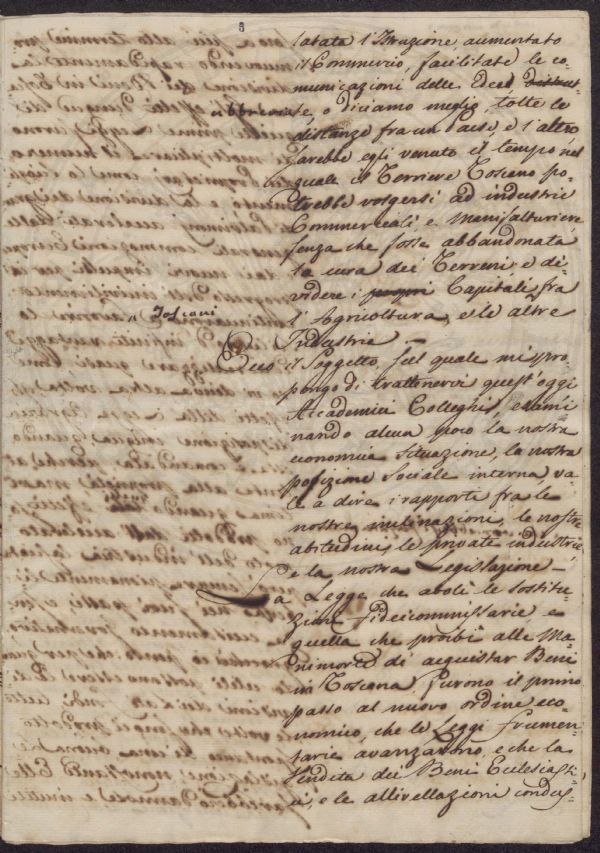 latata l'Istruzione, aumentato
il Commercio, facilitate le co-
municazioni delle Idee, distrut-
abbreviate, o diciamo meglio, tolte le
distanze fra un Paese, e l'altro
sarebbe egli venuto il tempo, nel
quale il Terriere Toscano po-
trebbe volgersi ad industrie
Commerciali, e Manifatturiere
senza che fosse abbandonata
la cura dei Terreni, e di-
videre i proprj Capitali fra
" Toscani
l'Agricoltura, e le altre
Industrie
Ecco il Soggetto, sul quale mi pro-
pongo di trattenervi quest'oggi
Accademici Colleghi, esami
nando alcun poco la nostra
economica situazione, la nostra
posizione Sociale interna, va-
le a dire i rapporti fra le
nostre inclinazioni, le nostre
abitudini, le private industrie,
e la nostra Legislazione —
La Legge che abolì le sostitu-
zioni fideicommissarie, e
quella che proibì alle Ma-
nimorte di acquistar Beni
in Toscana furono il primo
passo al nuovo ordine eco-
nomico, che le Leggi frumen-
tarie avanzarono, e che la
Vendita dei Beni Ecclesiasti-
ci, e le allivellazioni condus-